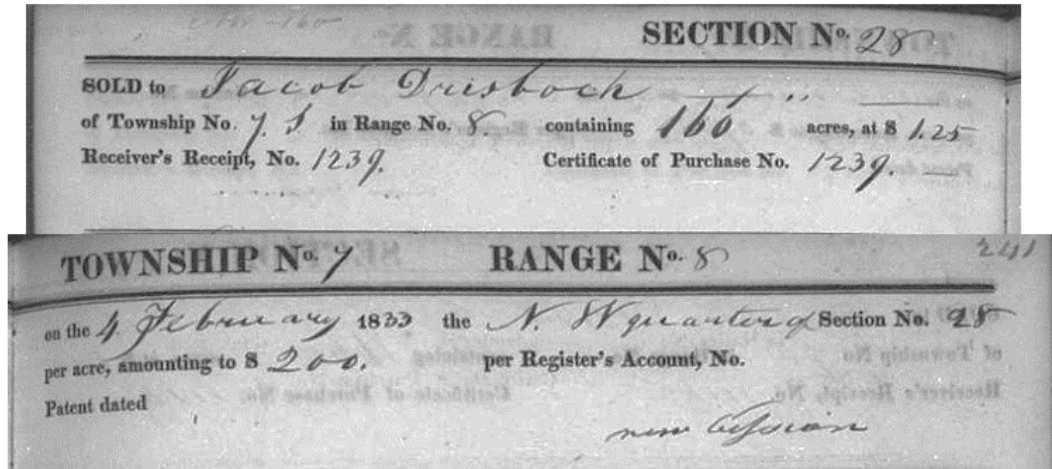 SECTION No. 28
SOLD to Jacob Drisboch
of Township No. 7 S in Range No. 8. containing 160 acres, at $ 1.25
Receiver's Receipt, No. 1239. Certificate of Purchase No. 1239.
TOWNSHIP No. 7 RANGE No. 8 241
on the 4 February 1833 the N. W quarter of Section No. 28
per acre, amounting to $ 200. per Register's Account, No.
Patent dated
new Cession